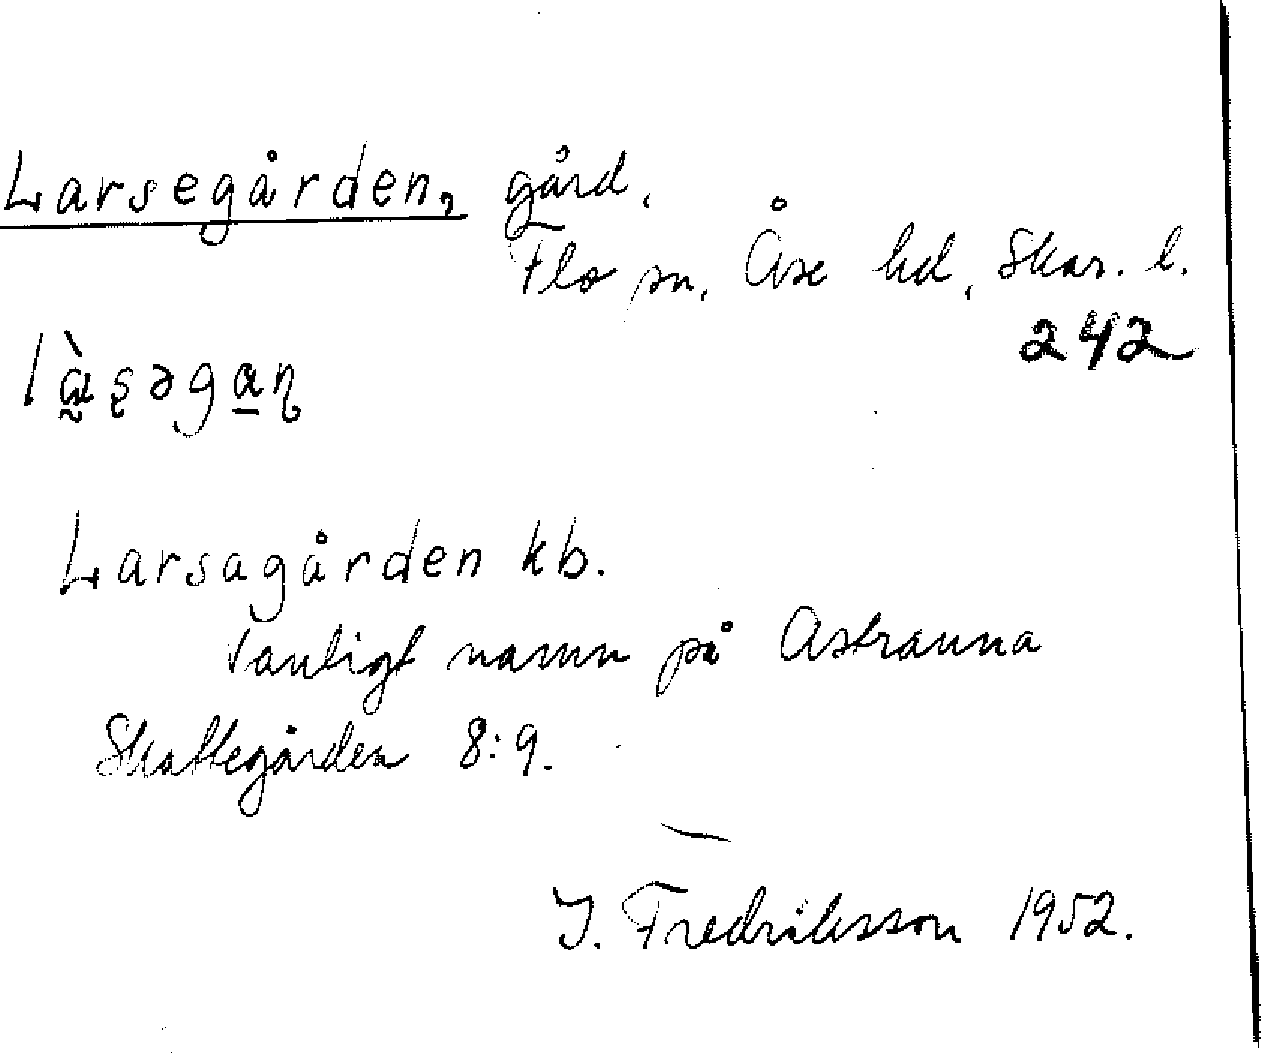 Larsegården, gård,
Flo sn, Åse hd, Skar. l.
242
l&#x2006;ɑ̰̀ʂəga̱ɳ
Larsagården kb.
Vanligt namn på Astranna
Skattegården 8:9.
I. Fredriksson 1952.